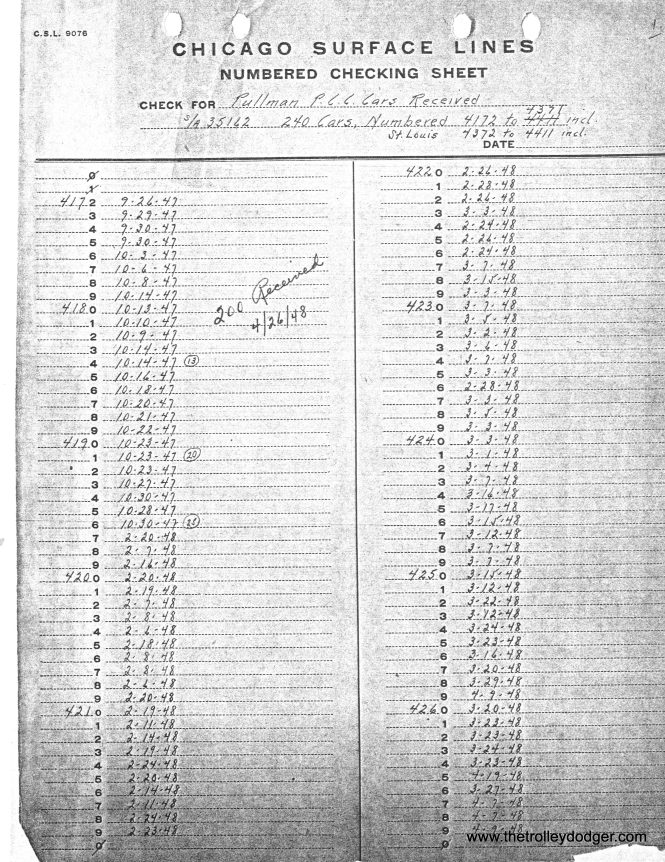 C.S.L. 9076
1
CHICAGO SURFACE LINES
NUMBERED CHECKING SHEET
CHECK FOR Pullman P.C.C. Cars Received
4371
S/A 35162 240 Cars, Numbered 4172 to 4411 incl.
St. Louis 4372 to 4411 incl.
DATE
0
1
4172 9-26-47
3 9-29-47
4 9-30-47
5 9-30-47
6 10-3-47
7 10-6-47
8 10-8-47
9 10-14-47
4180 10-13-47
1 10-10-47
2 10-9-47
3 10-14-47
4 10-14-47 (13)
5 10-16-47
6 10-18-47
7 10-20-47
8 10-21-47
9 10-22-47
4190 10-23-47
1 10-23-47 (20)
2 10-23-47
3 10-27-47
4 10-30-47
5 10-28-47
6 10-30-47 (25)
7 2-20-48
8 2-7-48
9 2-16-48
4200 2-20-48
1 2-19-48
2 2-7-48
3 2-8-48
4 2-6-48
5 2-18-48
6 2-8-48
7 2-8-48
8 2-6-48
9 2-20-48
4210 2-19-48
1 2-11-48
2 2-14-48
3 2-19-48
4 2-24-48
5 2-20-48
6 2-14-48
7 2-11-48
8 2-24-48
9 2-23-48
0
200 Received
4/26/48
4220 2-26-48
1 2-28-48
2 2-26-48
3 3-3-48
4 2-24-48
5 2-26-48
6 2-24-48
7 3-7-48
8 3-15-48
9 3-3-48
4230 3-7-48
1 3-5-48
2 3-2-48
3 3-6-48
4 3-7-48
5 3-3-48
6 2-28-48
7 3-3-48
8 3-5-48
9 3-3-48
4240 3-3-48
1 3-1-48
2 3-4-48
3 3-7-48
4 3-16-48
5 3-17-48
6 3-15-48
7 3-12-48
8 3-7-48
9 3-7-48
4250 3-15-48
1 3-12-48
2 3-22-48
3 3-12-48
4 3-24-48
5 3-23-48
6 3-16-48
7 3-20-48
8 3-29-48
9 4-9-48
4260 3-20-48
1 3-23-48
2 3-23-48
3 3-24-48
4 3-23-48
5 4-19-48
6 3-27-48
7 4-7-48
8 4-7-48
9
0
www.thetrolleydodger.com